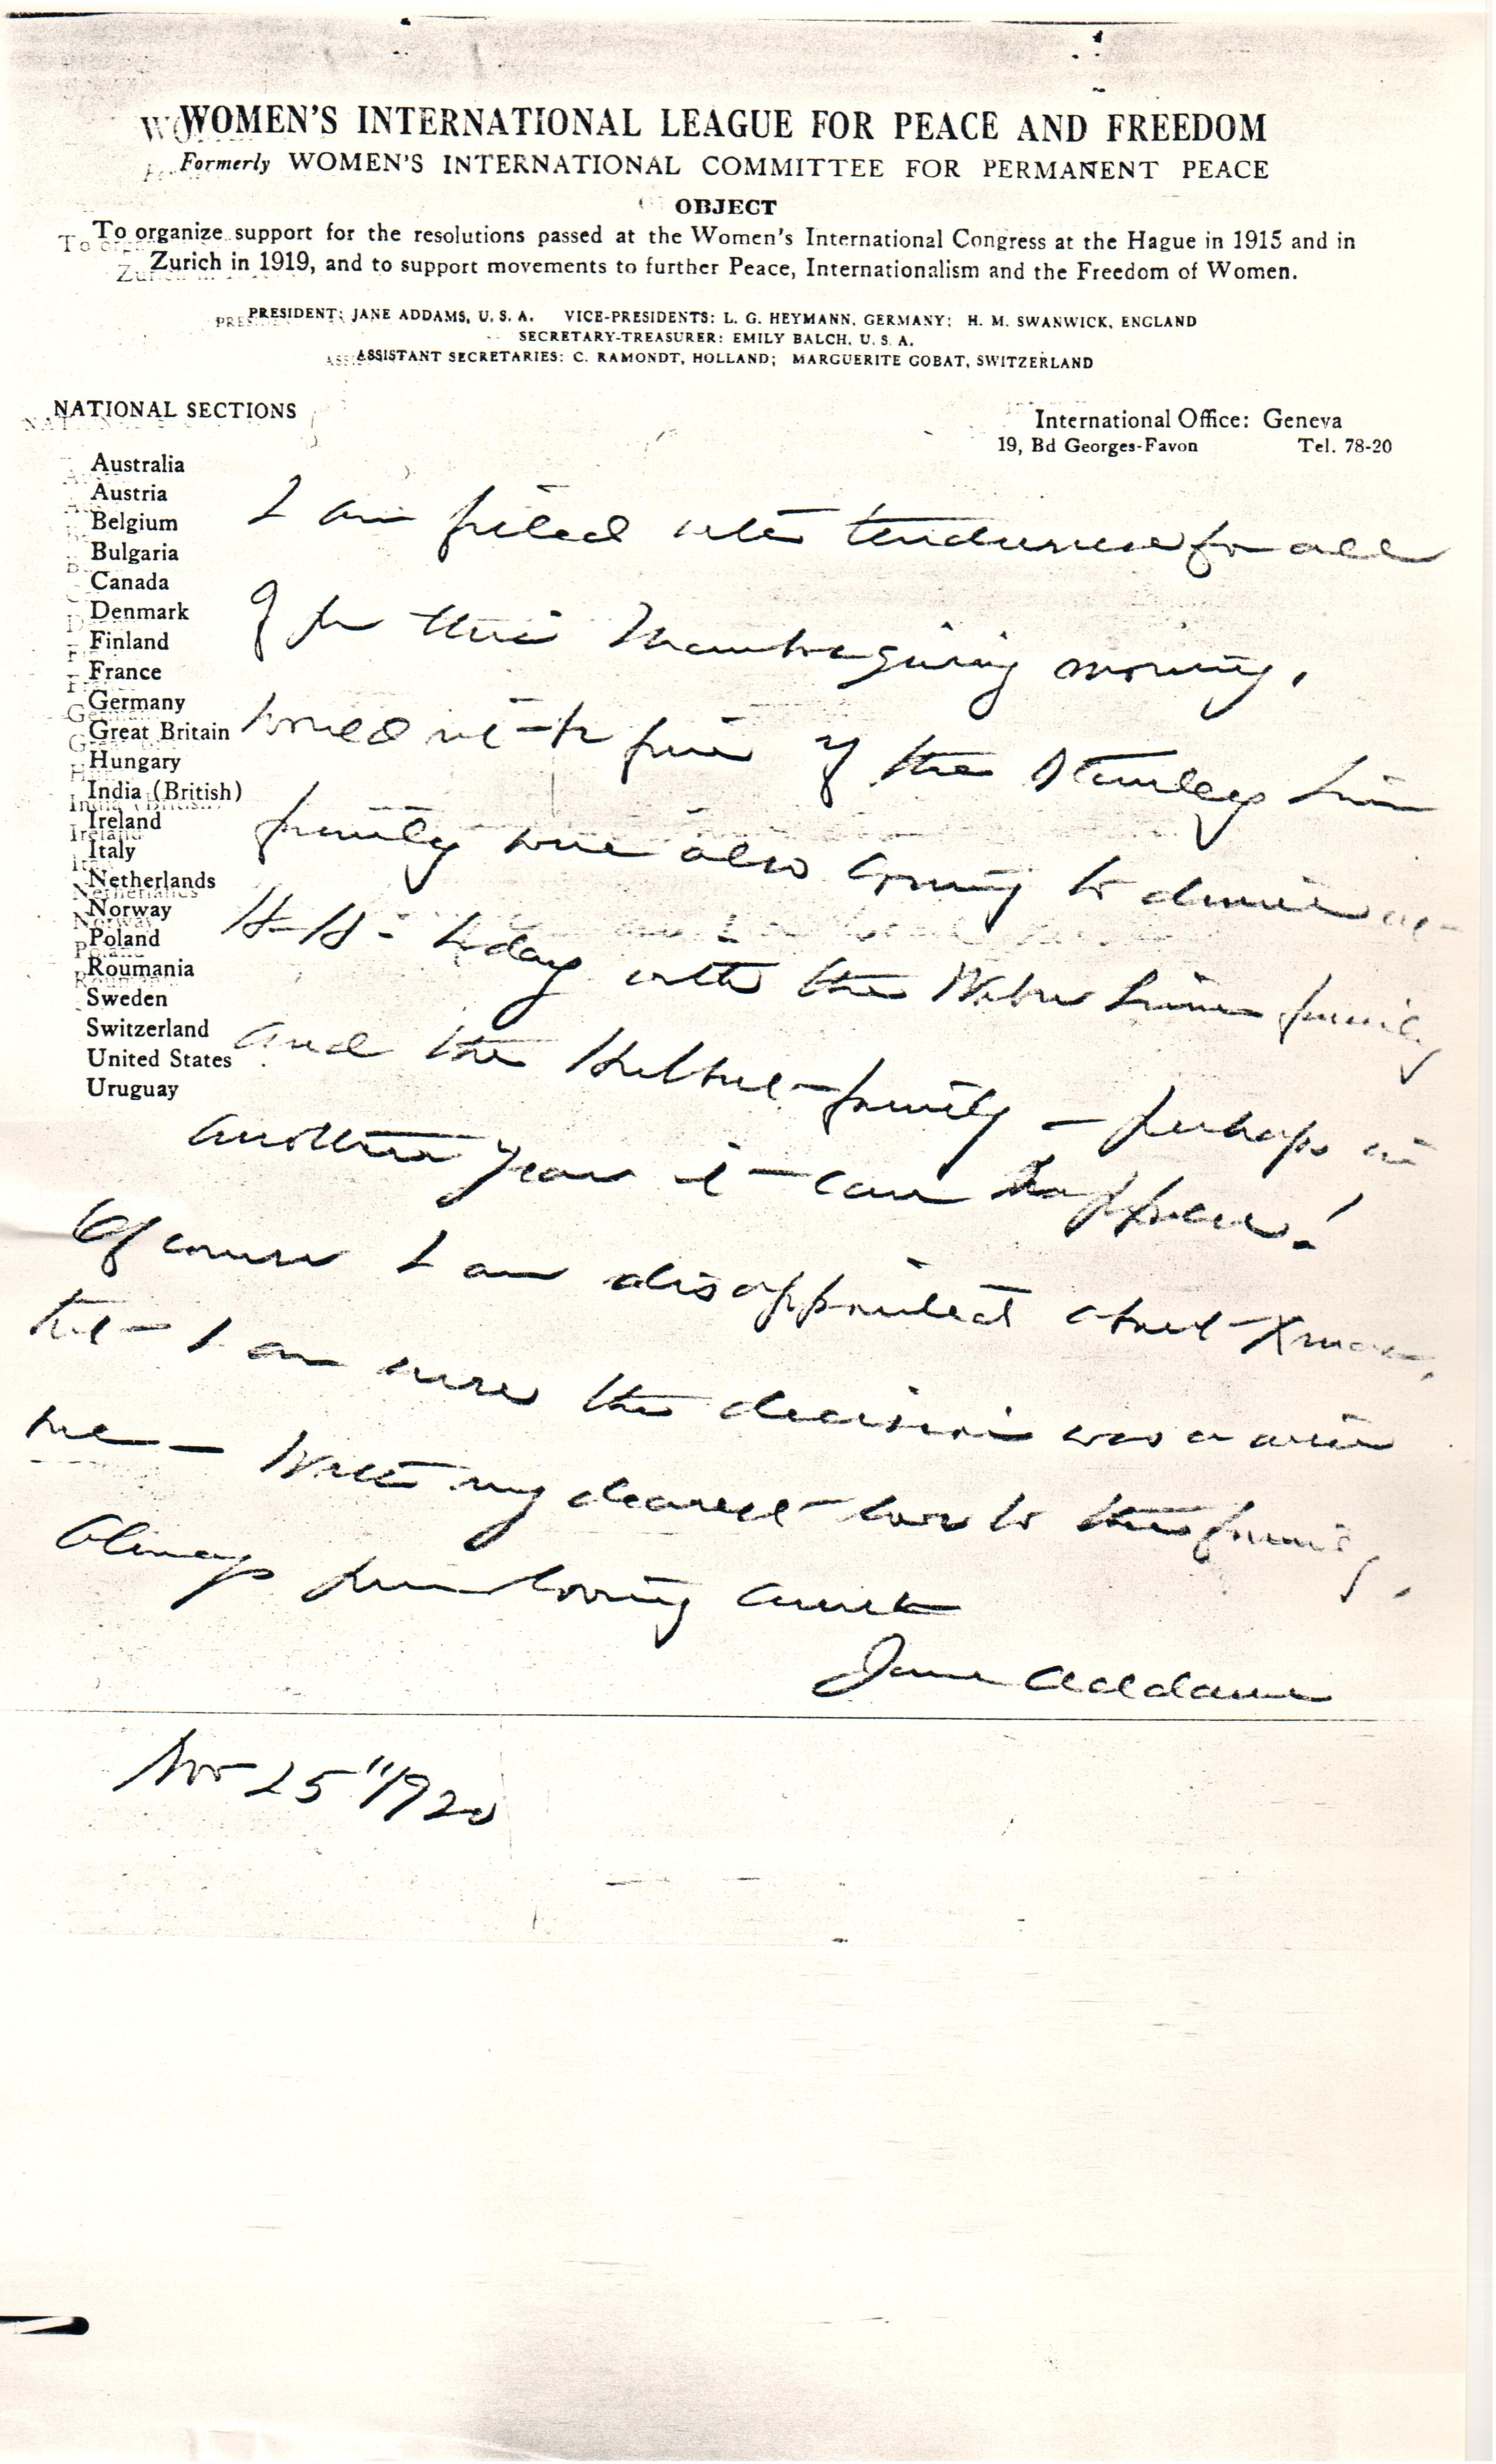 WOMEN'S INTERNATIONAL LEAGUE FOR PEACE AND FREEDOM
Formerly WOMEN'S INTERNATIONAL COMMITTEE FOR PERMANENT PEACE
OBJECT
To organize support for the resolutions passed at the Women's International Congress at the Hague in 1915 and in
Zurich in 1919, and to support movements to further Peace, Internationalism and the Freedom of Women.
PRESIDENT: JANE ADDAMS, U. S. A. VICE-PRESIDENTS: L. G. HEYMANN, GERMANY; H. M. SWANWICK, ENGLAND
SECRETARY-TREASURER: EMILY BALCH, U. S. A.
ASSISTANT SECRETARIES: C. RAMONDT, HOLLAND; MARGUERITE GOBAT, SWITZERLAND
NATIONAL SECTIONS
International Office: Geneva
19, Bd Georges-Favon Tel. 78-20
Australia
Austria
Belgium
Bulgaria
Canada
Denmark
Finland
France
Germany
Great Britain
Hungary
India (British)
Ireland
Italy
Netherlands
Norway
Poland
Roumania
Sweden
Switzerland
United States
Uruguay
I am filled with tenderness for all
of you this Thanksgiving morning.
Would not it be fine if the Stanley Linn
family were also coming to dinner at
H-H- today with the Weber Linn family
and the Hulbert family - perhaps in
another year it can happen!
Of course I am disappointed about Xmas,
but I am sure the decision was a wise
one - With my dearest love to the family,
Always your loving aunt
Jane Addams
Nov 25" 1920